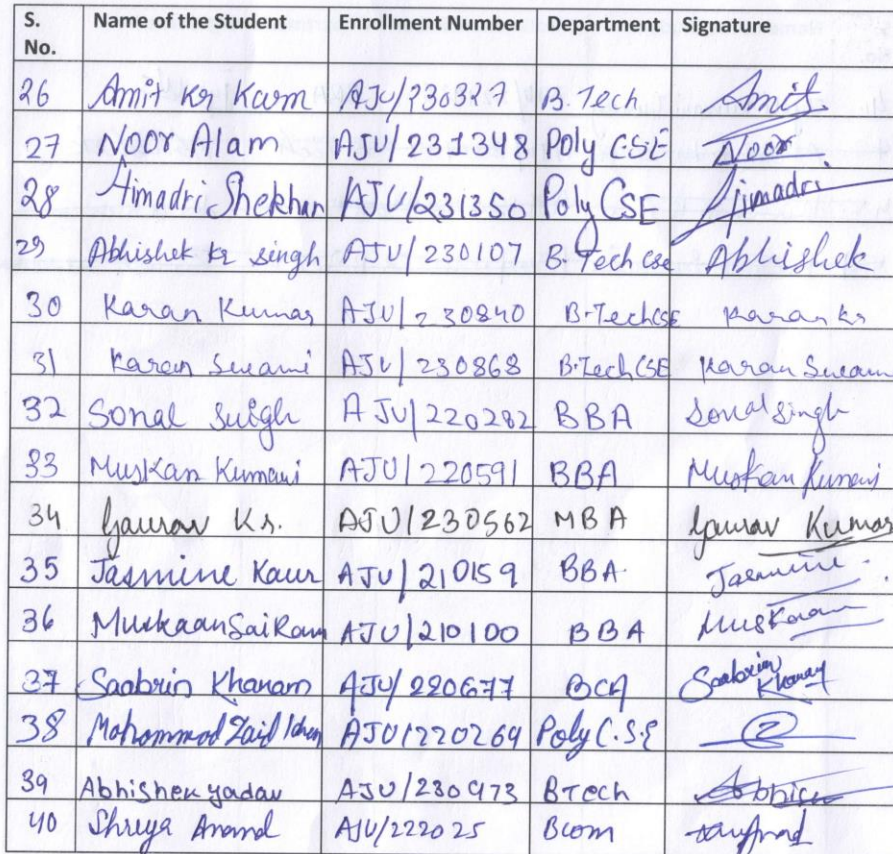 S. No. Name of the Student Enrollment Number Department Signature
26 Amit Kr Karm AJU/230327 B.Tech Amit
27 Noor Alam AJU/231348 Poly CSE Noor
28 Himadri Shekhar AJU/231350 Poly CSE Himadri
29 Abhishek kr singh AJU/230107 B.Tech cse Abhishek
30 Karan Kumar AJU/230840 B.Tech CSE Karan kr
31 Karan Swami AJU/230868 B.Tech CSE Karan Swami
32 Sonal Singh AJU/220282 BBA Sonal singh
33 Muskan Kumari AJU/220591 BBA Muskan Kumari
34 Gaurav Kr. AJU/230562 MBA Gaurav Kumar
35 Jasmine Kaur AJU/210159 BBA Jasmine
36 Muskaan Sai Ram AJU/210100 BBA Muskaan
37 Saabrin Khanam AJU/220677 BCA Saabrin Khanam
38 Mohammad Zaid Khan AJU/220269 Poly C.S.E
39 Abhishek yadav AJU/230973 BTech Abhish
40 Shreya Anand AJU/222025 Bcom